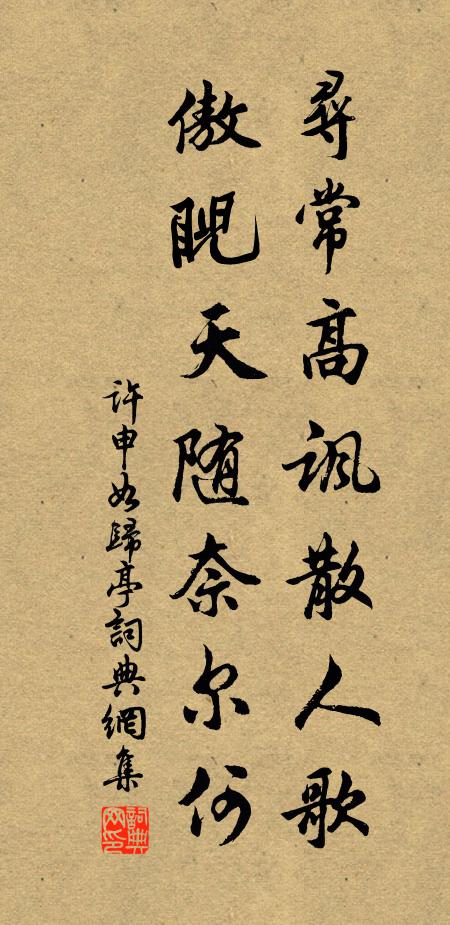 尋常高諷散人歌
傲睨天随奈尔何
许申如歸亭詞典網集
詞典网印